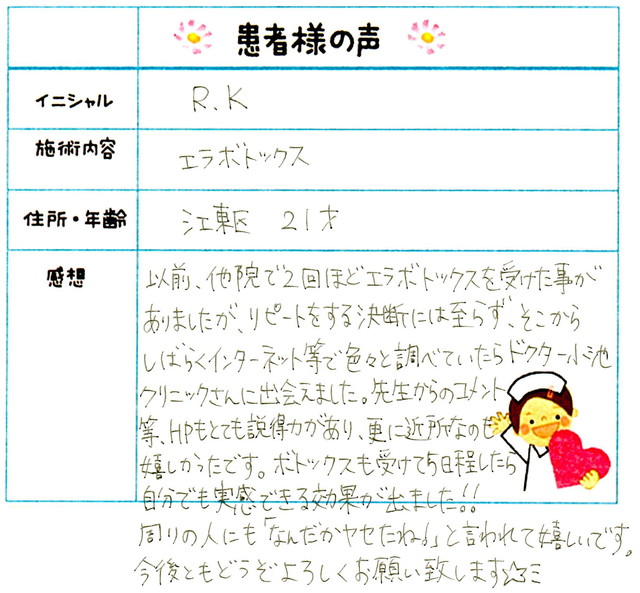 患者様の声
イニシャル R.K
施術内容 エラボトックス
住所・年齢 江東区 21才
感想
以前、他院で2回ほどエラボトックスを受けた事が
ありましたが、リピートをする決断には至らず、そこから
しばらくインターネット等で色々と調べていたらドクター小池
クリニックさんに出会えました。先生からのコメント
等、HPもとても説得力があり、更に近所なのも
嬉しかったです。ボトックスも受けて5日程したら
自分でも実感できる効果が出ました!!
周りの人にも「なんだかヤセたね♪」と言われて嬉しいです。
今後ともどうぞよろしくお願い致します☆ミ